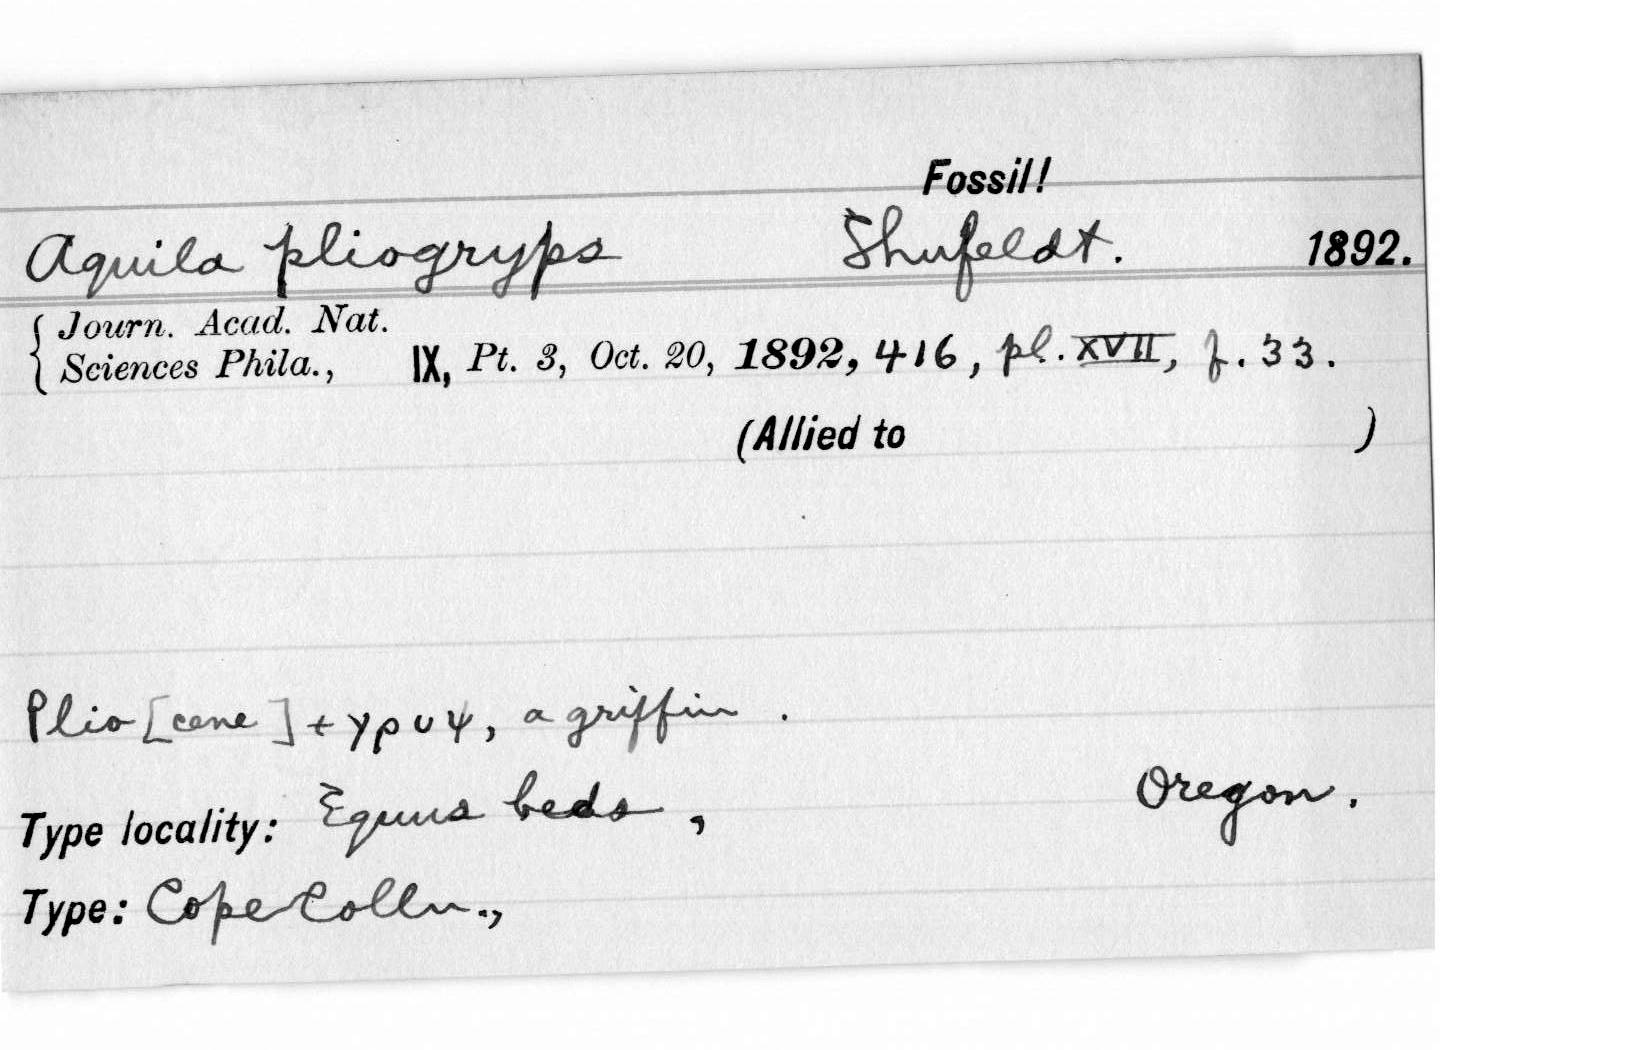 Fossil!
Aquila pliogryps Shufeldt. 1892.
{ Journ. Acad. Nat.
Sciences Phila., IX, Pt. 3, Oct. 20, 1892, 416, pl. XVII, f. 33.
(Allied to )
Plio[cene] + γρυψ, a griffin.
Type locality: Equus beds, Oregon.
Type: Cope Colln.,